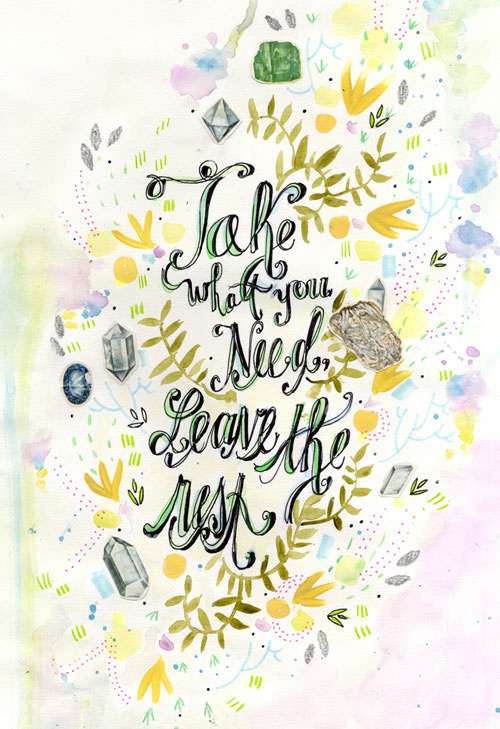 Take
what you
Need,
Leave the
rest